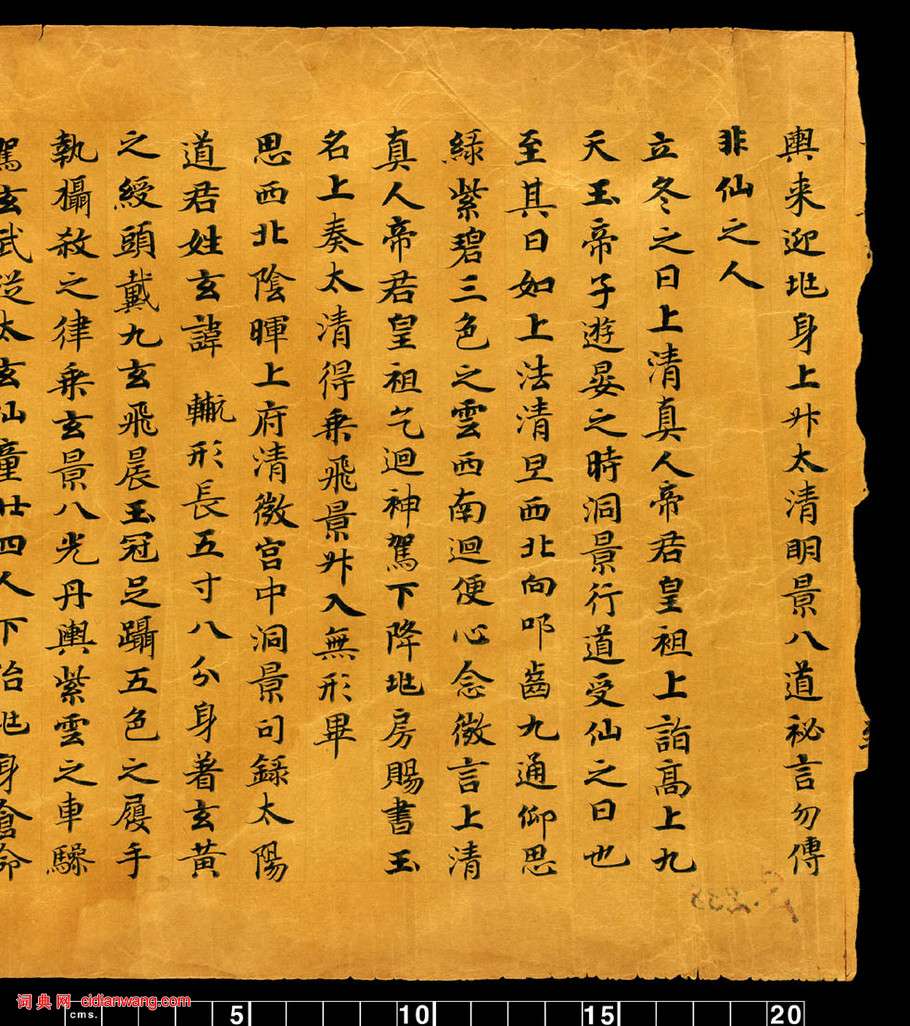 輿来迎𡉏身上升太清明景八道祕言勿傳
非仙之人
立冬之日上清真人帝君皇祖上詣高上九
天玉帝子遊晏之時洞景行道受仙之日也
至其日如上法清旦西北向叩齒九通仰思
緑紫碧三色之雲西南迴便心念微言上清
真人帝君皇祖乞迴神駕下降𡉏房賜書玉
名上奏太清得乗飛景升入無形畢
思西北陰暉上府清微宫中洞景司録太陽
道君姓玄諱 形長五寸八分身著玄黄
之綬頭戴九玄飛晨玉冠足躡五色之履手
執攝赦之律乗玄景八光丹輿紫雲之車驂
駕玄武從太玄仙童廿四人下治𡉏身倉命
词典网-cidianwang.com
cms. 5 10 15 20